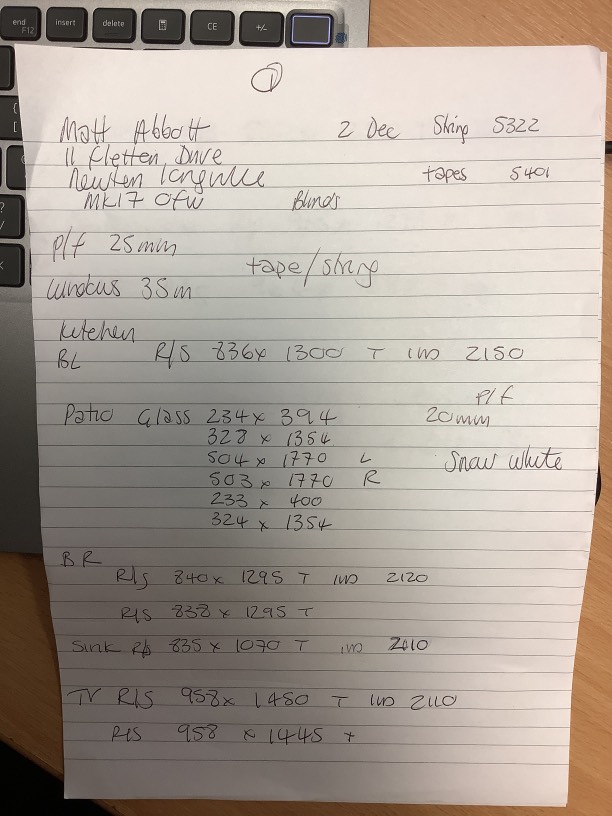 end
F12
insert
delete
CE
+/-
1
Matt Abbott 2 Dec String 5322
11 Fletten Drive
Newton Longville tapes 5401
MK17 0FW Blinds
P/f 25mm
tape/string
35m
Kitchen
BL R/S 836x 1300 T IWD 2150
P/f
Patio Glass 234x 394 20mm
328 x 1354
504x 1770 L Snow White
503x 1770 R
233 x 400
324 x 1354
BR
R/S 840x 1295 T IWD 2120
R/S 838x 1295 T
Sink R/S 835 x 1070 T IWD 2010
TV R/S 958x 1450 T IWD 2110
R/S 958 x 1445 T